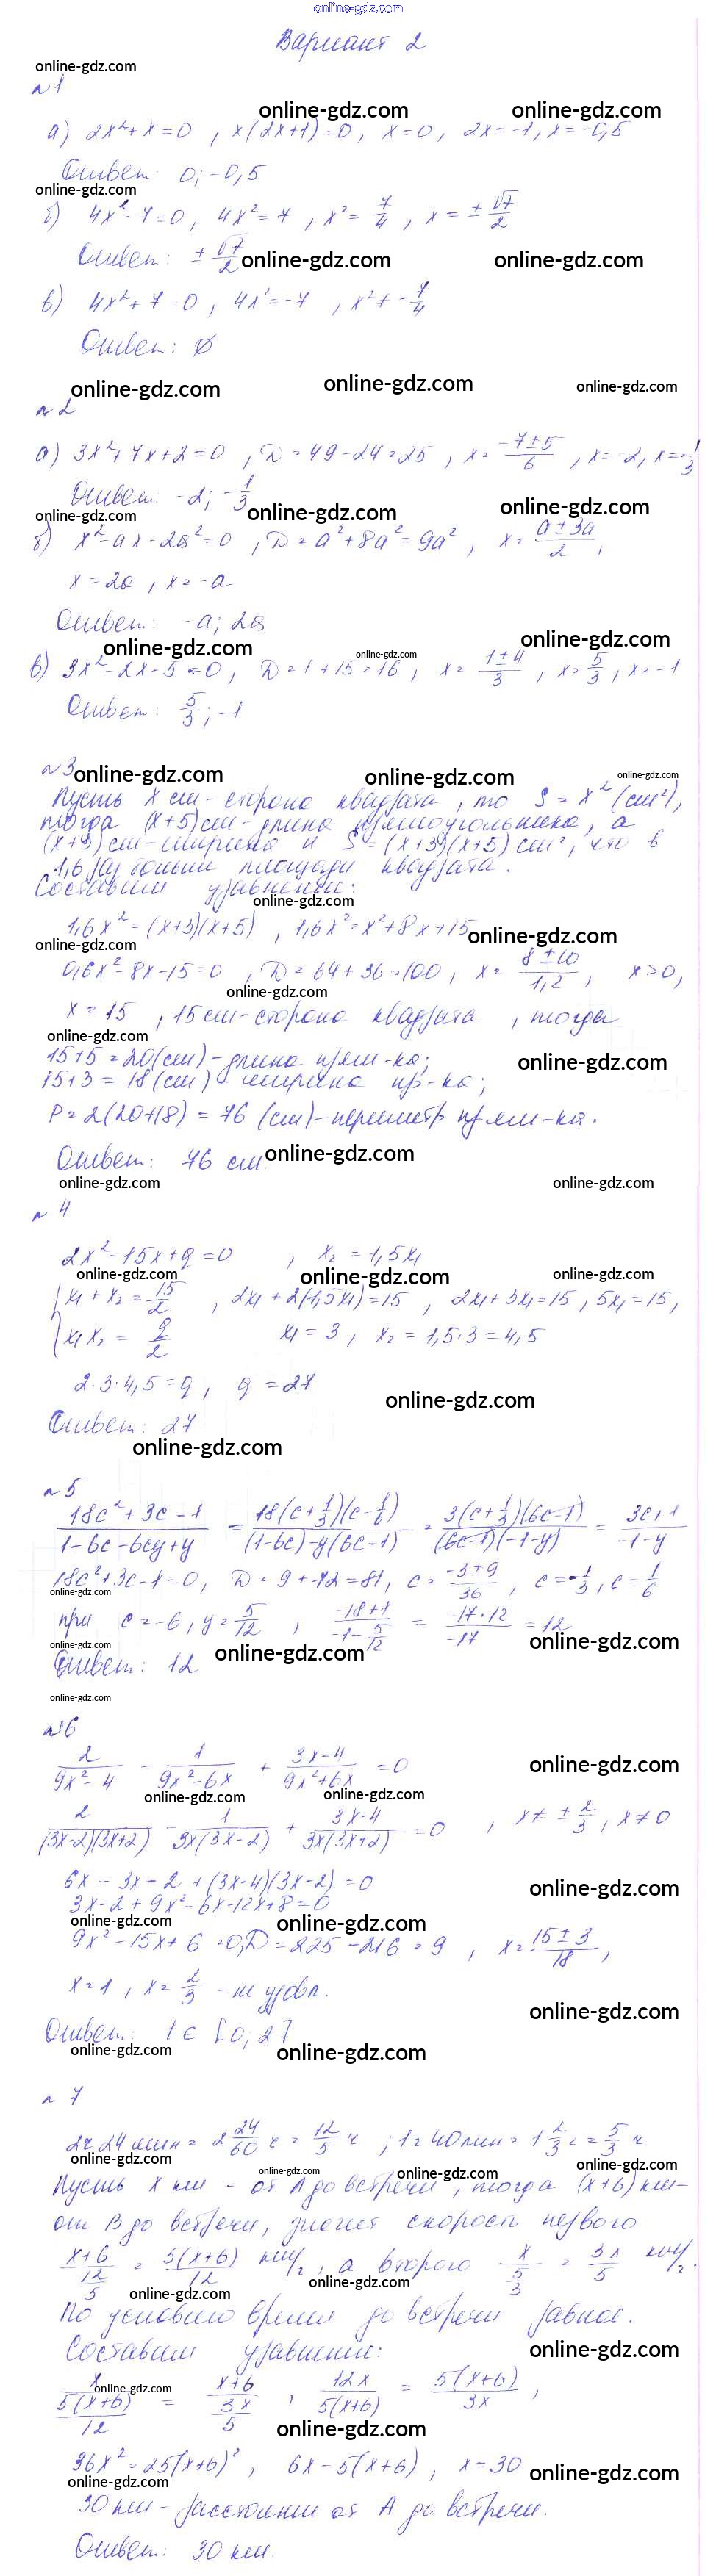 online-gdz.com
Вариант 2
online-gdz.com
№1
online-gdz.com online-gdz.com
а) 2x²+x=0 , x(2x+1)=0, x=0, 2x=-1, x=-0,5
Ответ: 0; -0,5
online-gdz.com
б) 4x²-7=0, 4x²=7, x²=7/4, x=±√7/2
Ответ: ±√7/2
online-gdz.com online-gdz.com
в) 4x²+7=0, 4x²=-7, x²≠-7/4
Ответ: ∅
online-gdz.com online-gdz.com online-gdz.com
№2
а) 3x²+7x+2=0, D=49-24=25, x=(-7±5)/6, x=-2, x=-1/3
Ответ: -2; -1/3
online-gdz.com online-gdz.com online-gdz.com
б) x²-ax-2a²=0, D=a²+8a²=9a², x=(a±3a)/2,
x=2a, x=-a
Ответ: -a; 2a
online-gdz.com online-gdz.com online-gdz.com
в) 3x²-2x-5=0, D=1+15=16, x=(1±4)/3, x=5/3, x=-1
Ответ: 5/3; -1
№3
online-gdz.com online-gdz.com online-gdz.com
Пусть x см - сторона квадрата, то S=x² (см²),
тогда (x+5) см - длина прямоугольника, а
(x+3) см - ширина и S=(x+3)(x+5) см², что в
1,6 раз больше площади квадрата.
Составим уравнение:
online-gdz.com
1,6x²=(x+3)(x+5), 1,6x²=x²+8x+15
online-gdz.com online-gdz.com
0,6x²-8x-15=0, D=64+36=100, x=(8±10)/1,2, x>0,
online-gdz.com
x=15, 15 см - сторона квадрата, тогда
online-gdz.com
15+5=20 (см) - длина прям-ка;
online-gdz.com
15+3=18 (см) - ширина пр-ка;
P=2(20+18)=76 (см) - периметр прям-ка.
Ответ: 76 см.
online-gdz.com
online-gdz.com online-gdz.com
№4
2x²-15x+q=0 , x₂=1,5x₁
online-gdz.com online-gdz.com online-gdz.com
{x₁+x₂=15/2, 2x₁+2(1,5x₁)=15, 2x₁+3x₁=15, 5x₁=15,
{x₁x₂=q/2 x₁=3, x₂=1,5·3=4,5
2·3·4,5=q, q=27
online-gdz.com
Ответ: 27
online-gdz.com
№5
(18c²+3c-1)/(1-6c-6cy+y) = (18(c+1/3)(c-1/6))/((1-6c)-y(6c-1)) = (3(c+1/3)(6c-1))/((6c-1)(-1-y)) = (3c+1)/(-1-y)
18c²+3c-1=0, D=9+72=81, c=(-3±9)/36, c=-1/3, c=1/6
online-gdz.com
при c=-6, y=5/12, (-18+1)/(-1-5/12) = (-17·12)/-17 = 12
online-gdz.com online-gdz.com online-gdz.com
Ответ: 12
online-gdz.com
№6
2/(9x²-4) - 1/(9x²-6x) + (3x-4)/(9x²+6x) =0
online-gdz.com
online-gdz.com online-gdz.com
2/((3x-2)(3x+2)) - 1/(3x(3x-2)) + (3x-4)/(3x(3x+2)) =0, x≠±2/3, x≠0
6x-3x-2+(3x-4)(3x-2)=0
online-gdz.com
3x-2+9x²-6x-12x+8=0
online-gdz.com online-gdz.com
9x²-15x+6=0, D=225-216=9, x=(15±3)/18,
x=1, x=2/3 - не удовл.
online-gdz.com
Ответ: 1∈[0;2]
online-gdz.com online-gdz.com
№7
2ч 24мин=2 24/60 ч=12/5 ч; 1ч 40мин=1 2/3 ч=5/3 ч
online-gdz.com online-gdz.com
online-gdz.com online-gdz.com
Пусть x км - от A до встречи, тогда (x+6) км -
от B до встречи, значит скорость первого
(x+6)/(12/5) = 5(x+6)/12 км/ч, а второго x/(5/3) = 3x/5 км/ч.
online-gdz.com online-gdz.com
По условию время до встречи равное.
Составим уравнение:
online-gdz.com
x/(5(x+6)/12) = (x+6)/(3x/5), 12x/(5(x+6)) = 5(x+6)/3x,
online-gdz.com
online-gdz.com
36x²=25(x+6)², 6x=5(x+6), x=30
online-gdz.com online-gdz.com
30 км - расстояние от A до встречи.
Ответ: 30 км.